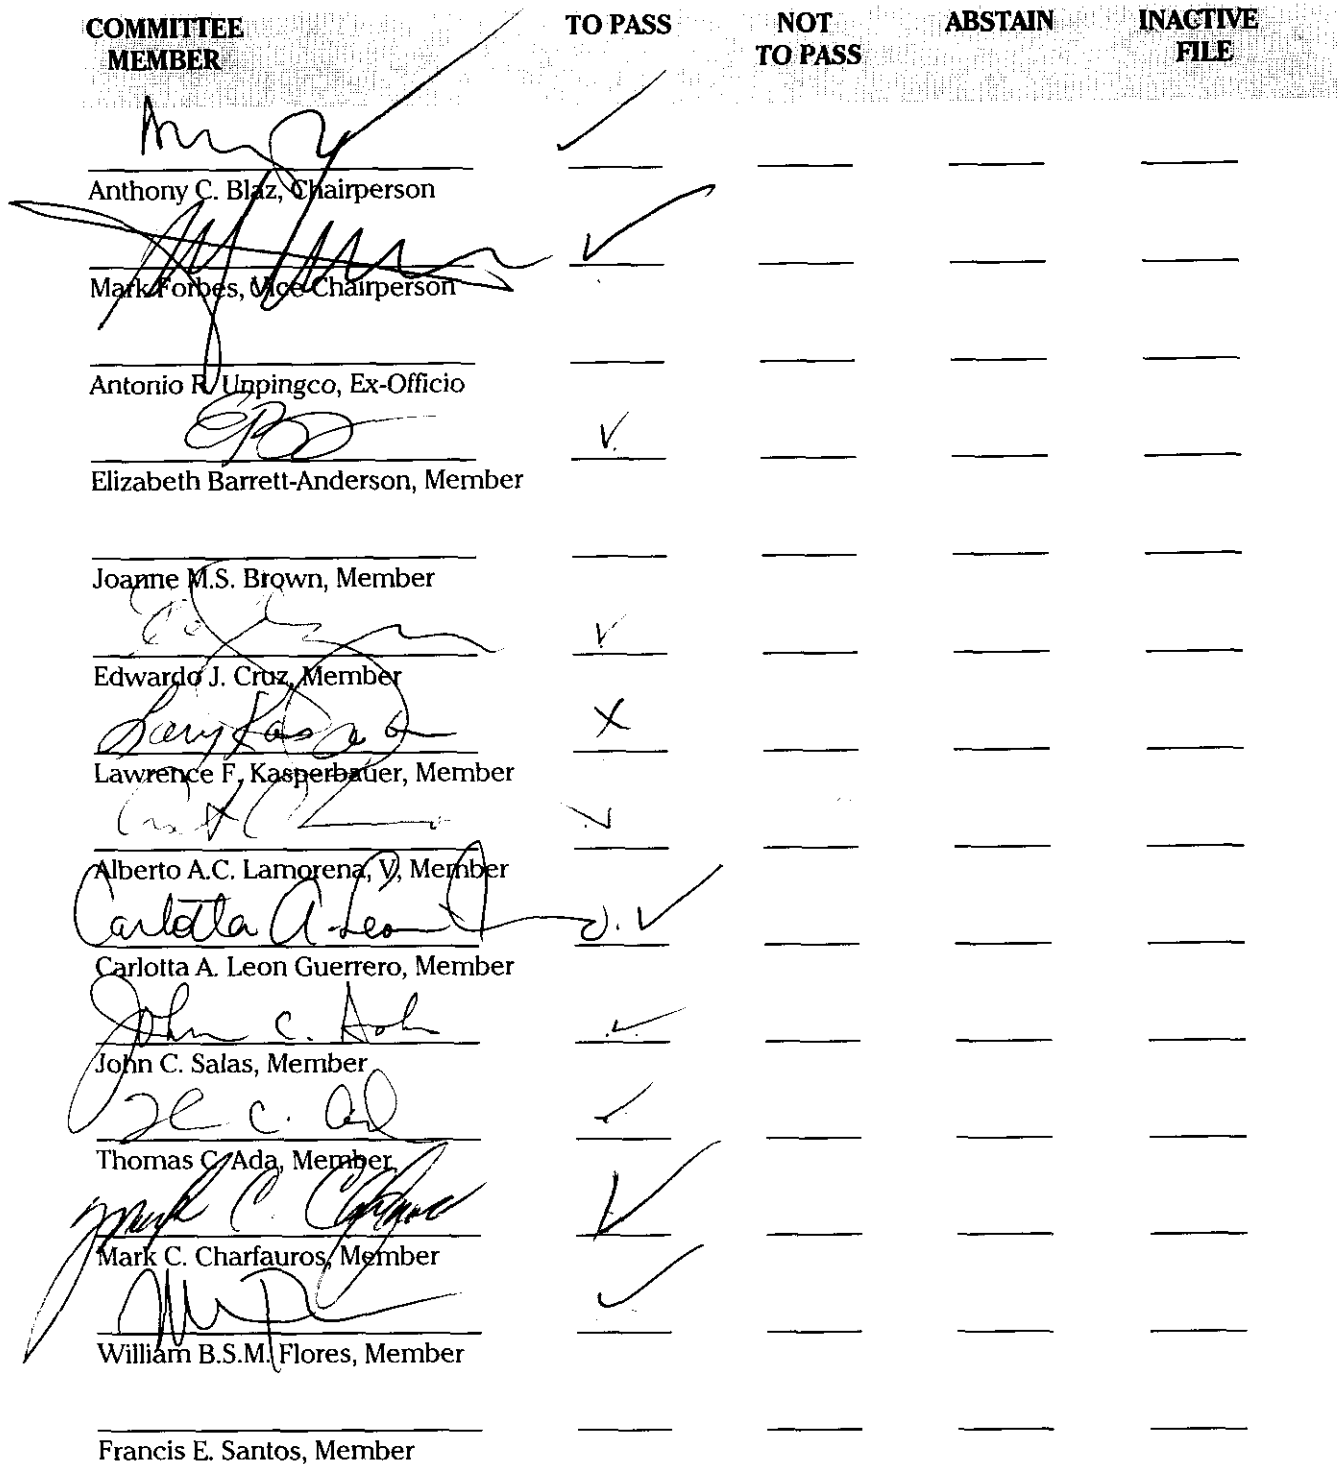 COMMITTEE MEMBER TO PASS NOT TO PASS ABSTAIN INACTIVE FILE
✓
Anthony C. Blaz, Chairperson
✓
Mark Forbes, Vice-Chairperson
Antonio R. Unpingco, Ex-Officio
✓
Elizabeth Barrett-Anderson, Member
Joanne M.S. Brown, Member
✓
Edwardo J. Cruz, Member
X
Lawrence F. Kasperbauer, Member
✓
Alberto A.C. Lamorena, V, Member
Carlotta A. Leon ✓
Carlotta A. Leon Guerrero, Member
John C. ✓
John C. Salas, Member
✓
Thomas C. Ada, Member
Mark C. ✓
Mark C. Charfauros, Member
✓
William B.S.M. Flores, Member
Francis E. Santos, Member